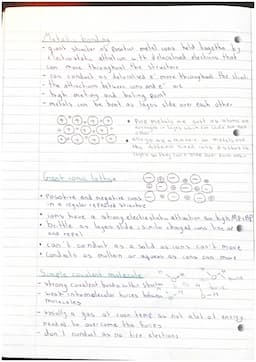 Metallic bonding
- giant structure of positive metal ions held together by
electrostatic attraction with delocalised electrons that
can move throughout the structure
- can conduct as delocalised e⁻ move throughout the struct.
- the attractions between ions and e⁻ are
- high melting and boiling point
- metals can be bent as layers slide over each other
• Pure metals are soft as atoms are
arranged in layers which can slide over each
other
• alloys are a mixture of metals and
the different sized ions
layers so they can't slide over each other
Giant ionic lattice
• positive and negative ions
in a regular repeated structure
• ions have a strong electrostatic attraction so high MP+BP
• brittle as layers slide similar charged ions line up
and repel
• can't conduct as a solid as ions can't move
• conducts as molten or aqueous as ions can move
Simple covalent molecule
- strong covalent bonds within
- weak intermolecular forces between
molecules
- usually a gas at room temp as not alot of energy
needed to overcome the forces
- don't conduct as no free electrons